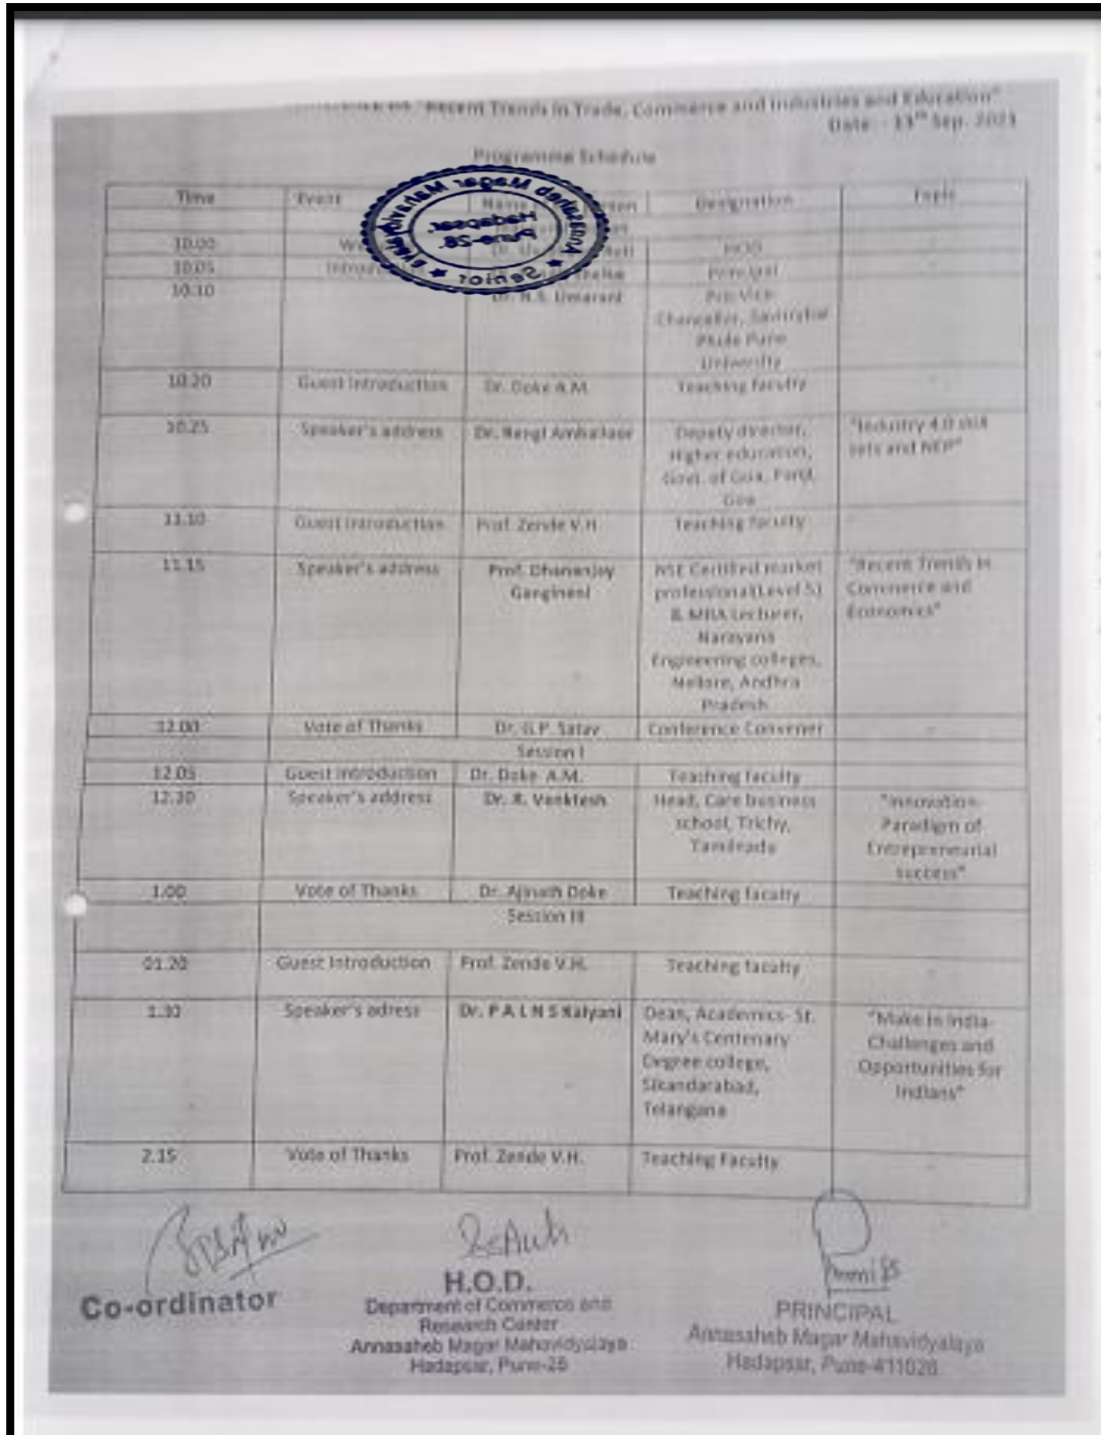 "Recent Trends in Trade, Commerce and Industries and Education"
Date:- 13th Sep. 2021
Programme Schedule
Time Event Designation Topic
10.00 HOD
10.05 Principal
10.10 Dr. N.S. Umarani Pro Vice
Chancellor, Savitribai
Phule Pune
University
10.20 Guest Introduction Dr. Doke A.M. Teaching faculty -
10.25 Speaker's address Dr. "Industry 4.0 skill
sets and NEP"
Deputy director,
Higher education,
Govt. of Goa, Panji,
Goa
11.10 Guest Introduction Prof. Zende V.H. Teaching faculty
11.15 Speaker's address Prof. Dhananjay
Gangineni
NSE Certified market
professional(Level 5)
& MBA Lecturer,
Narayana
Engineering colleges,
Nellore, Andhra
Pradesh
"Recent Trends in
Commerce and
Economics"
12.00 Vote of Thanks Dr. G.P. Satav Conference Convener -
Session I
12.05 Guest Introduction Dr. Doke A.M. Teaching faculty
12.30 Speaker's address Dr. R. Venktesh Head, Care business
school, Trichy,
Tamilnadu
"Innovation-
Paradigm of
Entrepreneurial
success"
1.00 Vote of Thanks Dr. Ajinath Doke Teaching faculty
Session III
01.20 Guest Introduction Prof. Zende V.H. Teaching faculty -
1.30 Speaker's adress Dr. P A L N S Kalyani Dean, Academics- St.
Mary's Centenary
Degree college,
Sikandarabad,
Telangana
"Make in India-
Challenges and
Opportunities for
Indians"
2.15 Vote of Thanks Prof. Zende V.H. Teaching Faculty -
Annasaheb Magar Mahavidyalaya
Hadapsar,
Pune-28.
★ Senior ★
Co-ordinator
H.O.D.
Department of Commerce and
Research Center
Annasaheb Magar Mahavidyalaya
Hadapsar, Pune-28
PRINCIPAL
Annasaheb Magar Mahavidyalaya
Hadapsar, Pune-411028